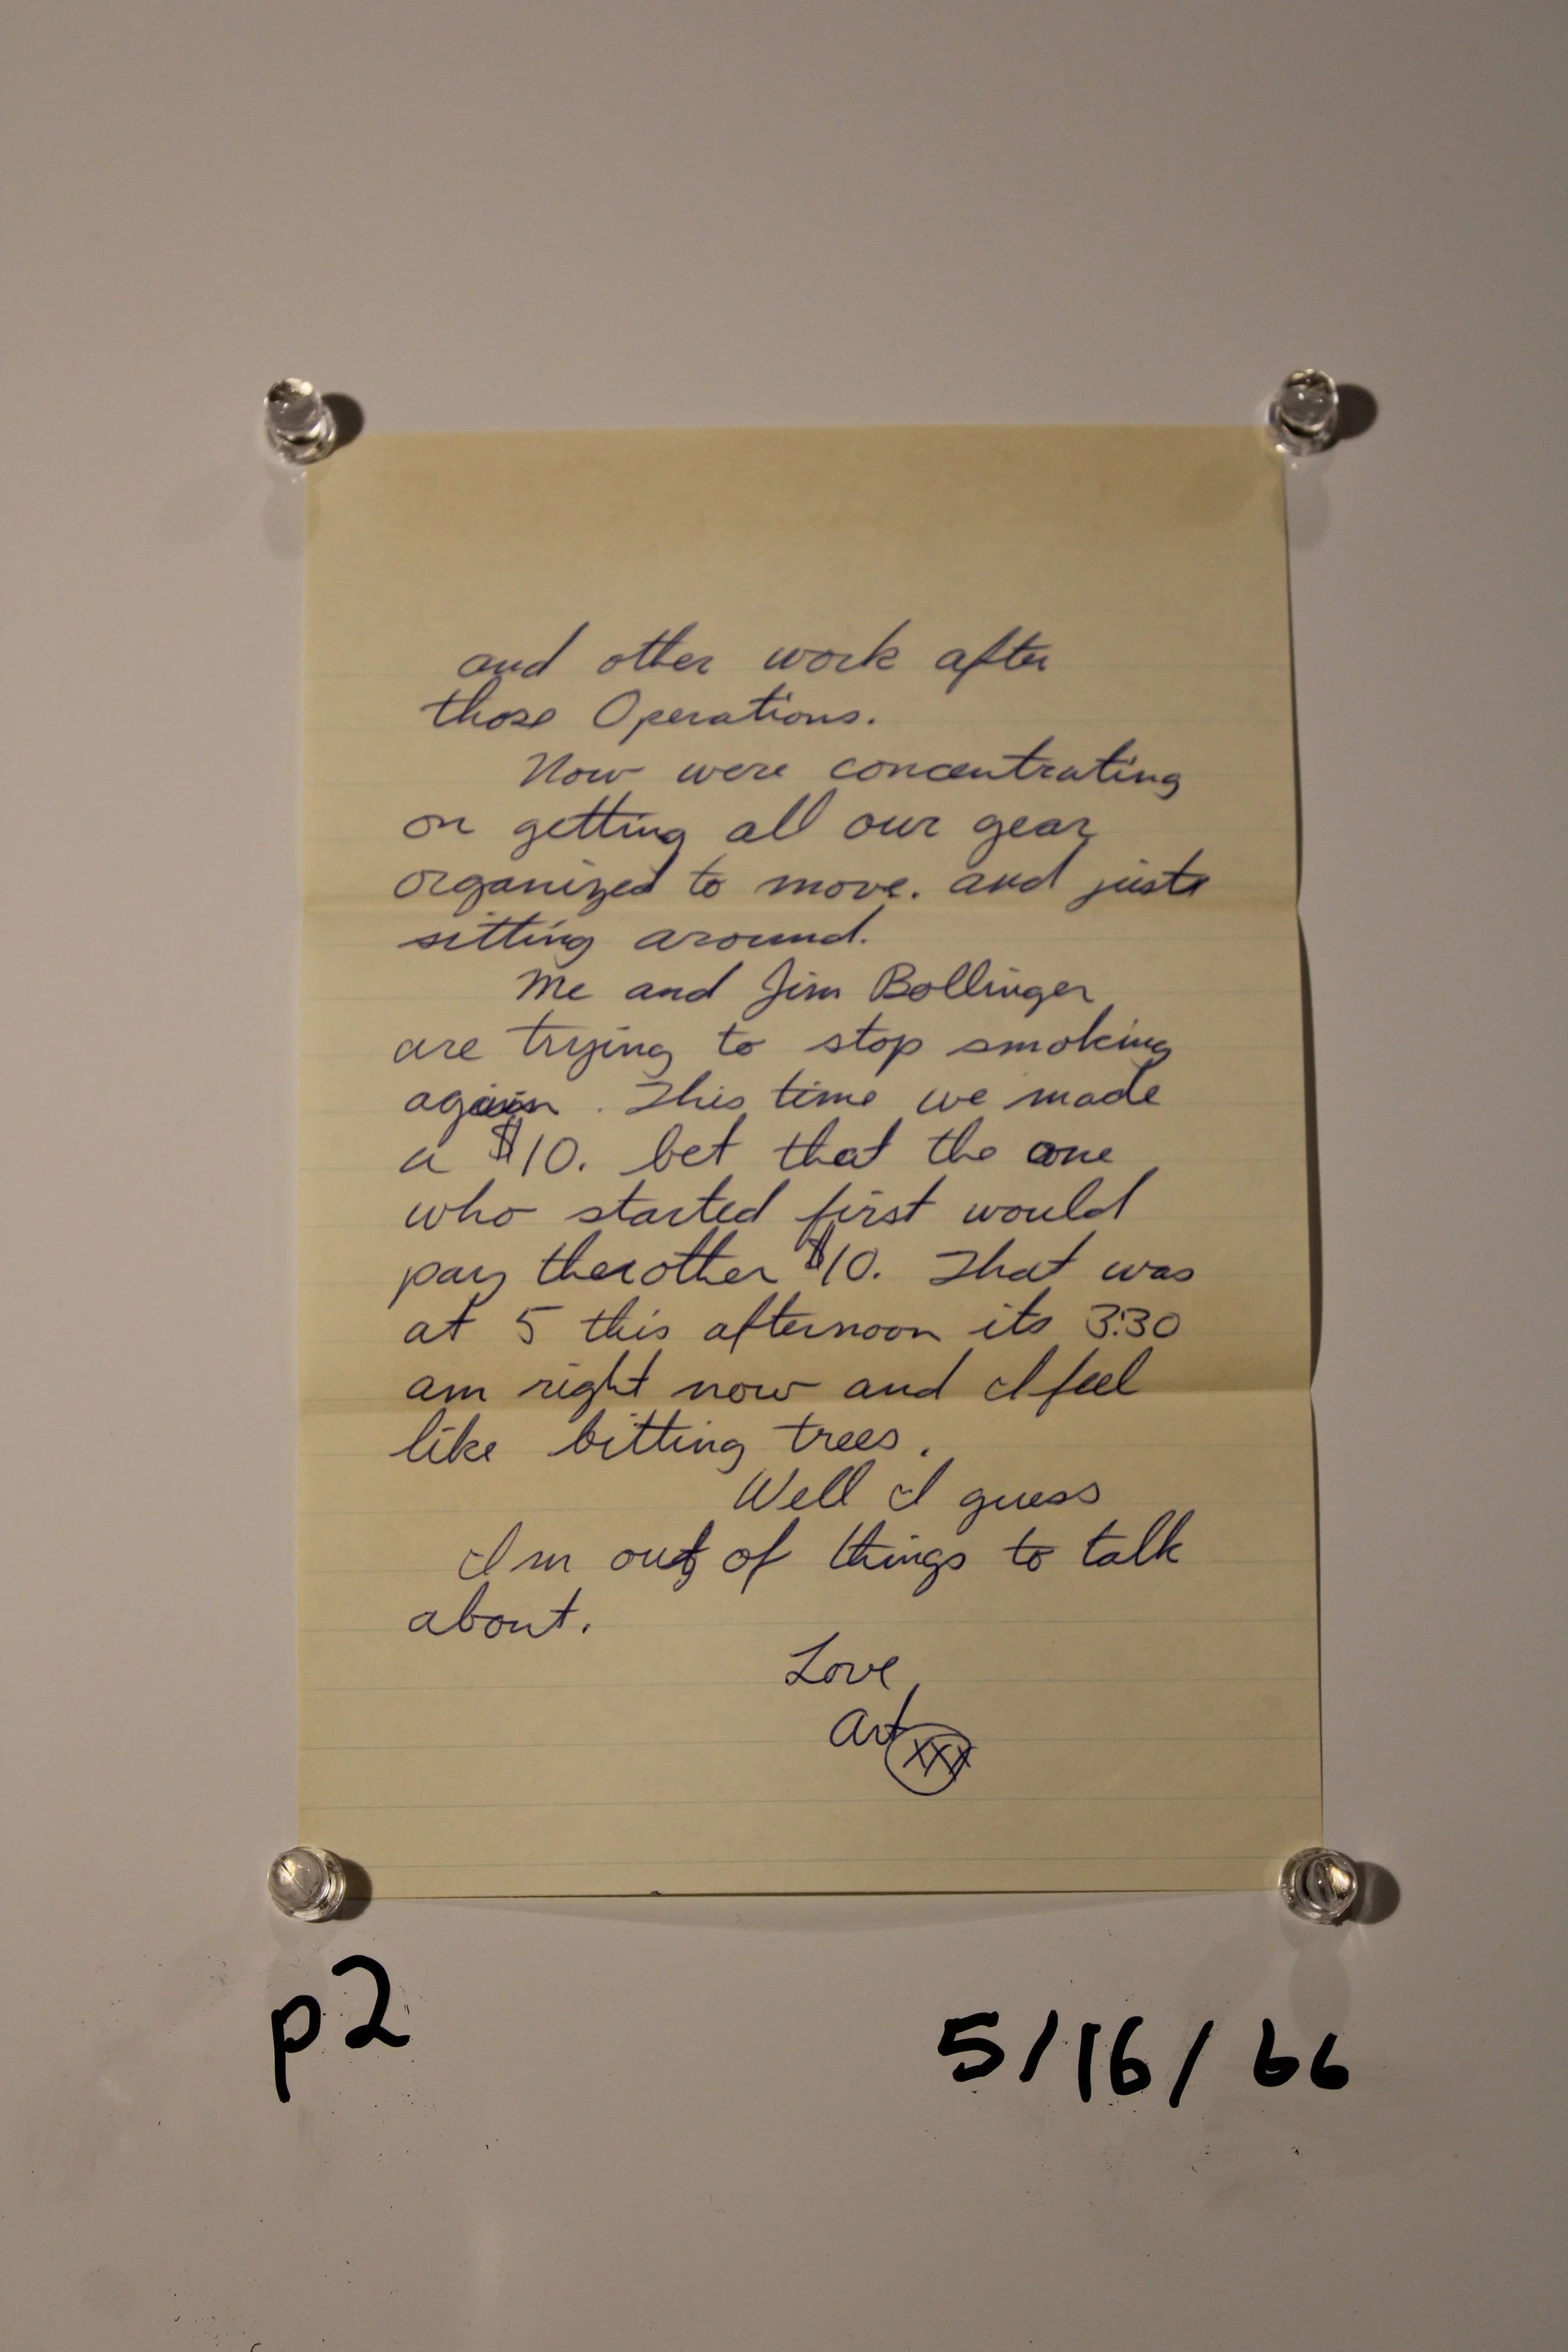 and other work after
those Operations.
Now were concentrating
on getting all our gear
organized to move. and just
sitting around.
Me and Jim Bollinger
are trying to stop smoking
again. This time we made
a $10. bet that the one
who started first would
pay the other $10. That was
at 5 this afternoon its 3:30
am right now and I feel
like bitting trees.
Well I guess
Im out of things to talk
about.
Love
Art
XXX
p2
5/16/66